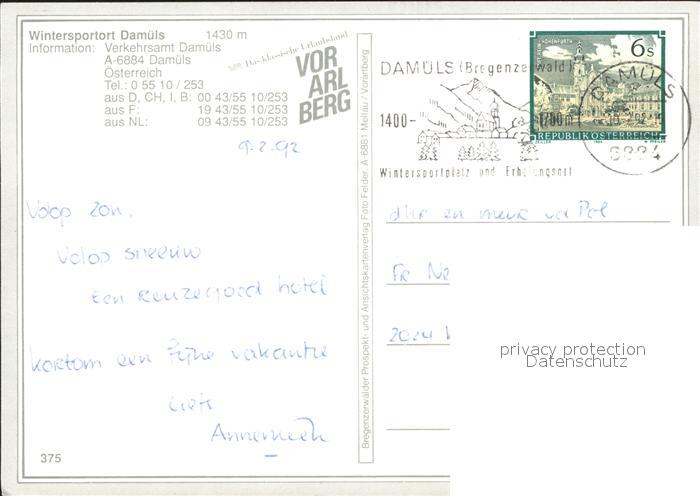 Wintersportort Damüls 1430 m
Information: Verkehrsamt Damüls
A-6884 Damüls
Österreich
Tel.: 0 55 10 / 253
aus D, CH, I, B: 00 43/55 10/253
aus F: 19 43/55 10/253
aus NL: 09 43/55 10/253
Das klassische Urlaubsland
VOR
ARL
BERG
9.2.92
Volop zon.
Volop sneeuw
Een reuzegoed hotel
kortom een fijne vakantie
Liefs
Annemiek
375
Bregenzerwälder Prospekt- und Ansichtskartenverlag Foto Felder, A-6881 Mellau / Vorarlberg
DAMÜLS (Bregenzerwald)
1400-
1700m
Wintersportplatz und Erholungsort
6 S
REPUBLIK ÖSTERREICH
DAMÜLS
6884
dhr en mevr vd Pol
Fr Na
2024
privacy protection
Datenschutz